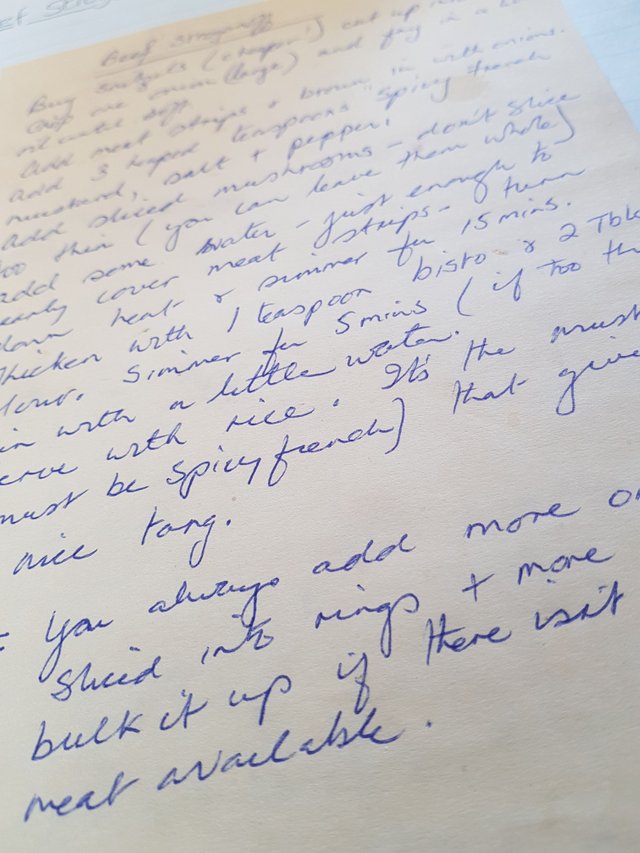 Beef Stroganoff
Buy cut up
one onion (large) and fry in a
oil until soft.
Add meat strips + brown in with onions.
add 3 heaped teaspoons "spicy french
mustard, salt + pepper.
add sliced mushrooms - don't slice
too thin (you can leave them whole)
add some water - just enough to
cover meat strips - turn
down heat & simmer for 15 mins.
Thicken with 1 teaspoon bisto & 2 Tbls
flour. Simmer for 5 mins (if too th
in with a little water.
erve with rice. It's the must
must be spicy french) that give
nice tang.
You always add more on
sliced into rings + more
bulk it up if there isn't
meat available.